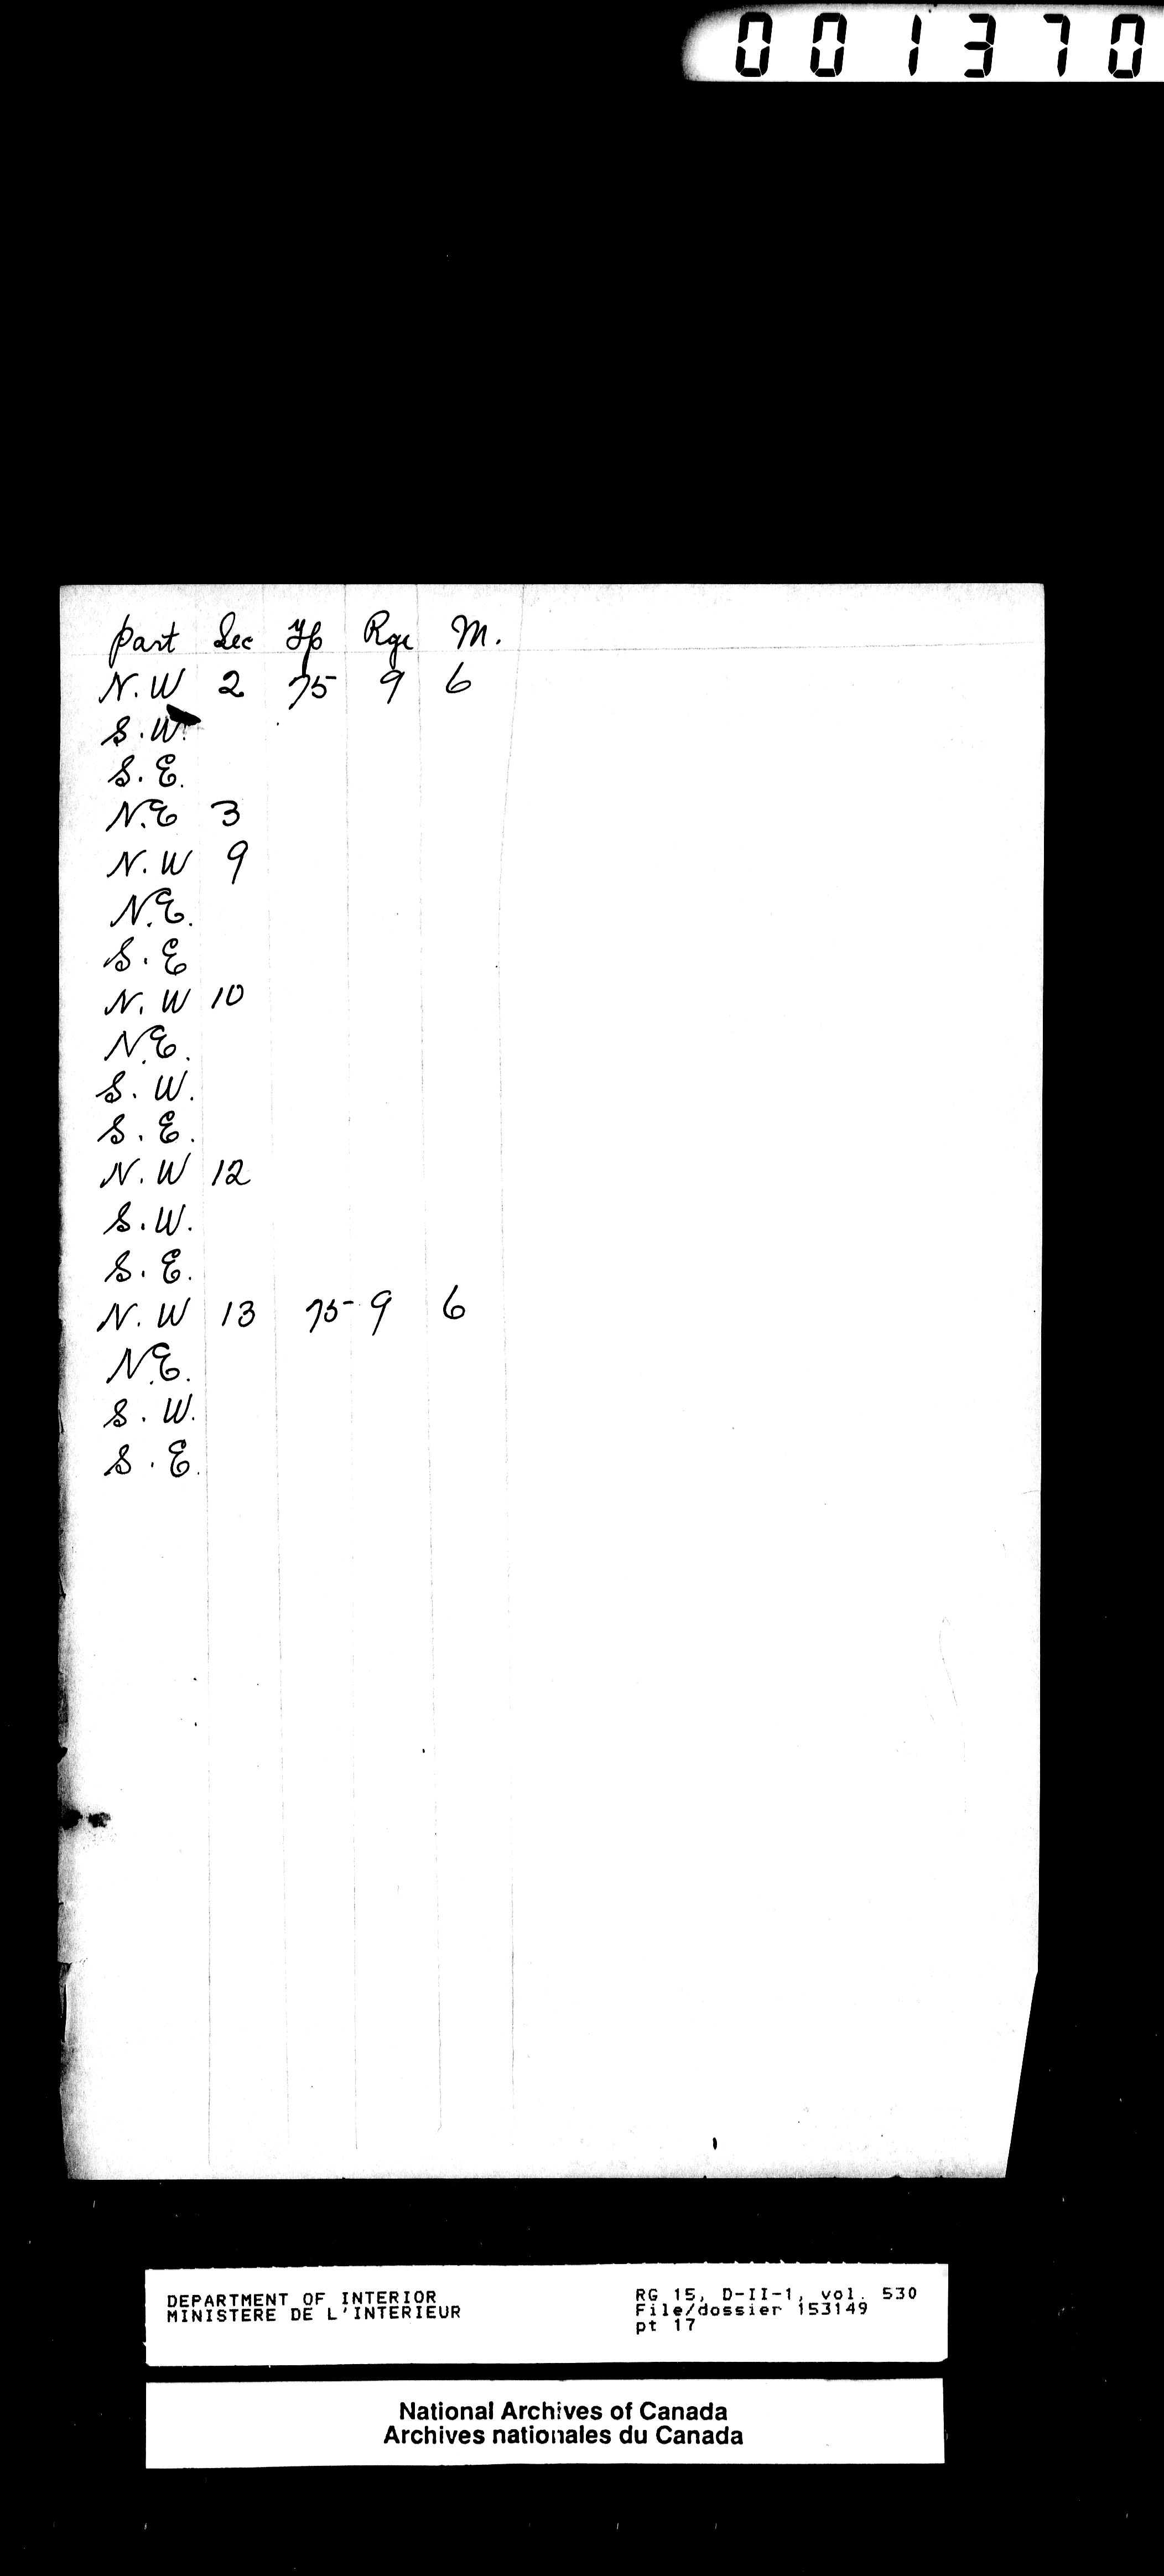 001370
part Sec Tp Rge M.
N.W 2 75 9 6
S.W.
S.E.
N.E 3
N.W 9
N.E.
S.E
N.W 10
N.E.
S.W.
S.E.
N.W 12
S.W.
S.E.
N.W 13 75 9 6
N.E.
S.W.
S.E.
DEPARTMENT OF INTERIOR
MINISTERE DE L'INTERIEUR
RG 15, D-II-1, vol. 530
File/dossier 153149
pt 17
National Archives of Canada
Archives nationales du Canada